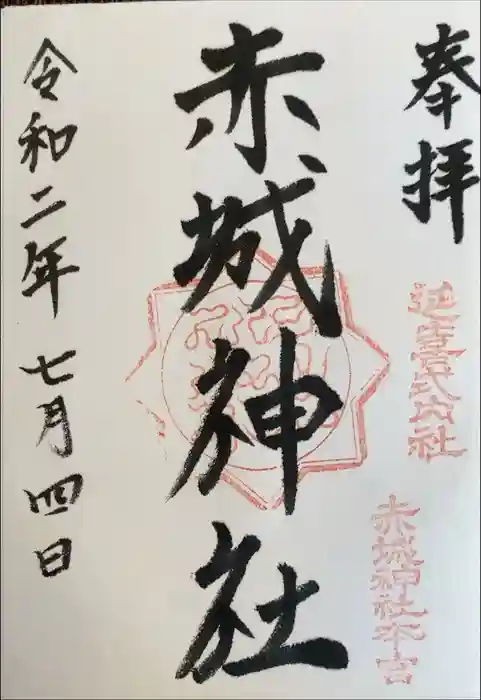 奉拝
延喜式内社
赤城神社本宮
赤城神社
令和二年 七月四日